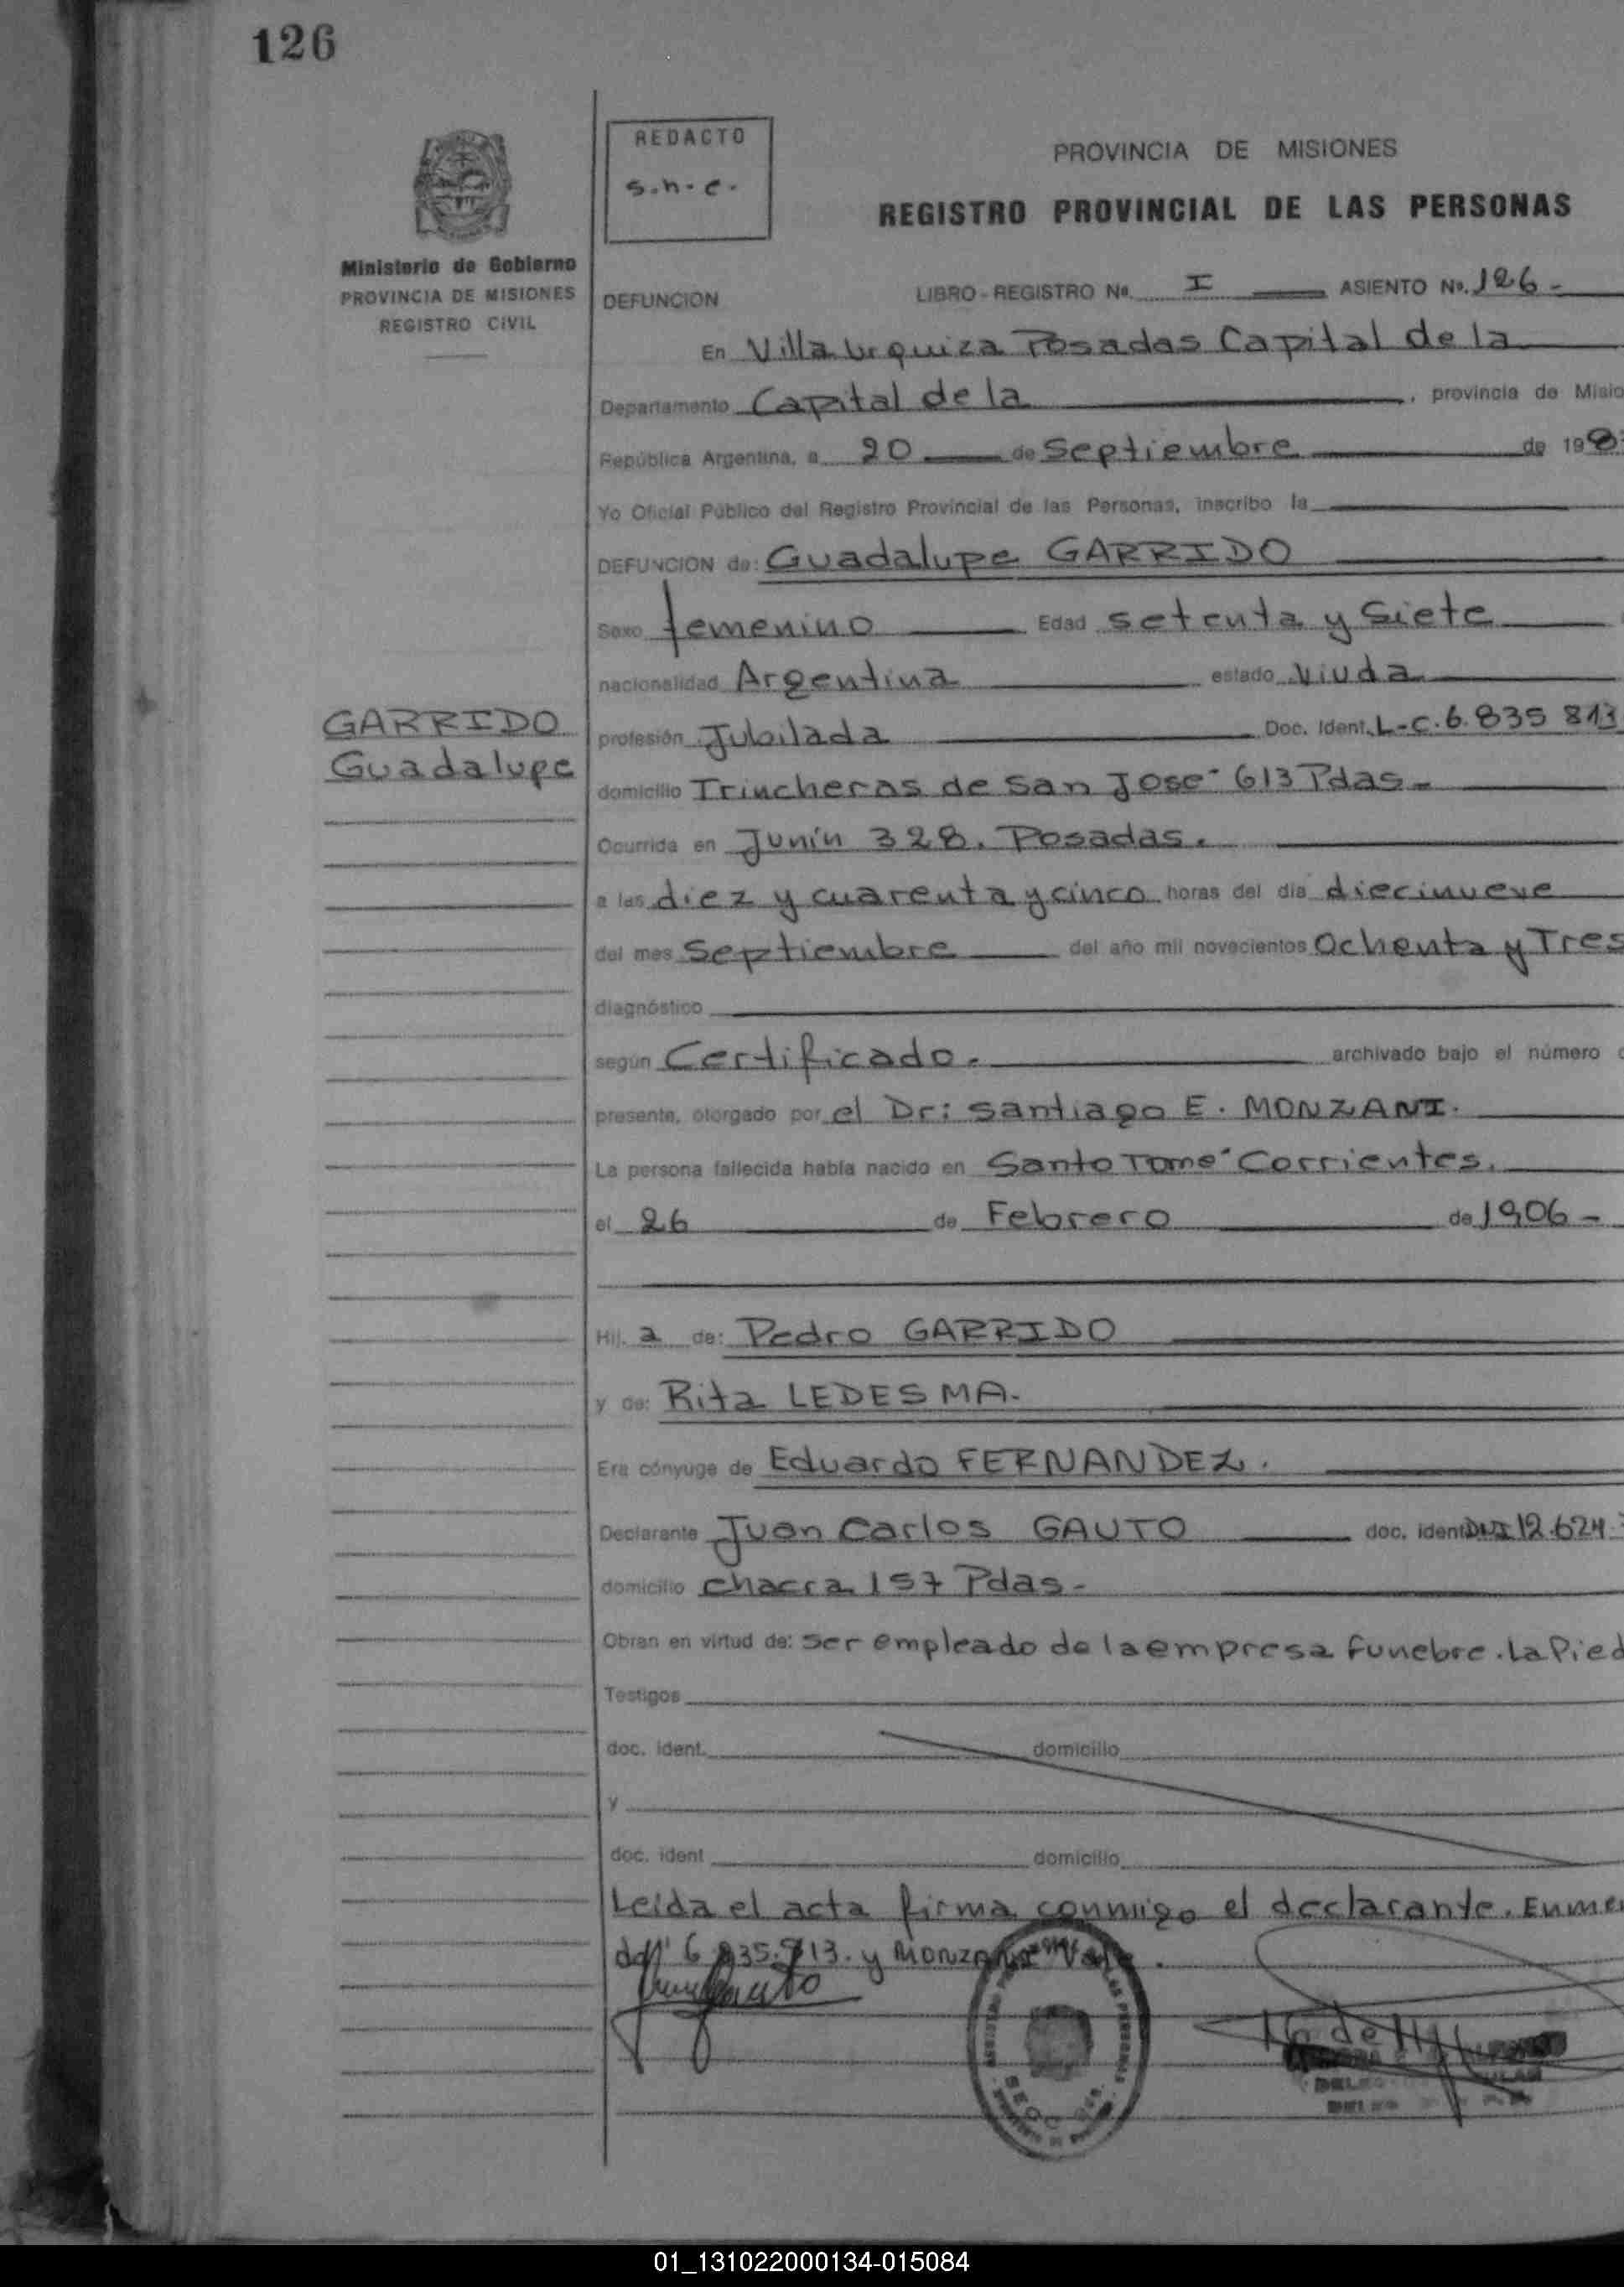 126
REDACTO
s.n.e.
PROVINCIA DE MISIONES
REGISTRO PROVINCIAL DE LAS PERSONAS
Ministerio de Gobierno
PROVINCIA DE MISIONES
REGISTRO CIVIL
DEFUNCION LIBRO-REGISTRO No. I ASIENTO No. 126-
En Villa Urquiza Posadas Capital de la
Departamento Capital de la , provincia de Misio
República Argentina, a 20 de Septiembre de 198
Yo Oficial Público del Registro Provincial de las Personas, inscribo la
DEFUNCION de: Guadalupe GARRIDO
Sexo femenino Edad setenta y Siete
nacionalidad Argentina estado Viuda
GARRIDO
Guadalupe
profesión Jubilada Doc. Ident. L-C.6.835 813
domicilio Trincheras de San José 613 Pdas-
Ocurrida en Junín 328. Posadas.
a las diez y cuarenta y cinco horas del día diecinueve
del mes Septiembre del año mil novecientos Ochenta y Tres
diagnóstico
según Certificado. archivado bajo el número
presente, otorgado por el Dr: Santiago E. MONZANI.
La persona fallecida había nacido en Santo Tomé Corrientes.
el 26 de Febrero de 1906-
Hij. a de: Pedro GARRIDO
y de: Rita LEDESMA.
Era cónyuge de Eduardo FERNANDEZ.
Declarante Juan Carlos GAUTO doc. ident DNI 12.624
domicilio chacra 157 Pdas-
Obran en virtud de: ser empleado de la empresa funebre. La Pied
Testigos
doc. ident. domicilio
y
doc. ident domicilio
Leida el acta firma conmigo el declarante. Enme
do 6 835.813. y MONZANI Vale.
01_131022000134-015084